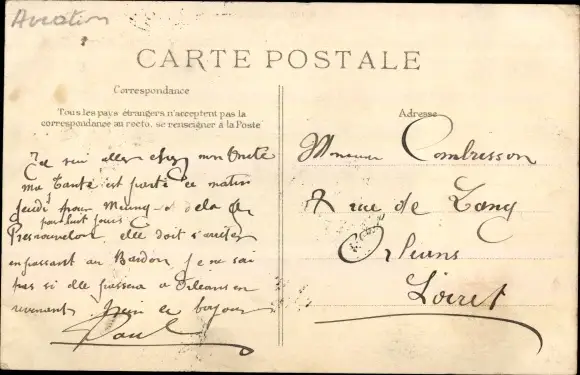 Aviation
CARTE POSTALE
Correspondance
Tous les pays étrangers n'acceptent pas la
correspondance au recto, se renseigner à la Poste
Je suis allé chez mon Oncle
ma Tante est partie ce matin
jeudi pour Meung et de là
pour huit jours
elle doit s'arrêter
en passant au Bardon je ne sai
pas si elle passera a Orléans en
revenant bonjour
Paul
Adresse
Monsieur Combrisson
rue de
Orléans
Loiret